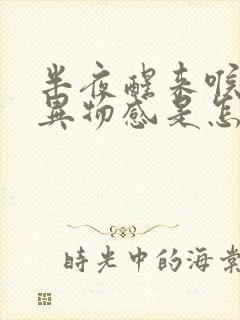 半夜醒来喉
異物感是怎
時光中的海棠